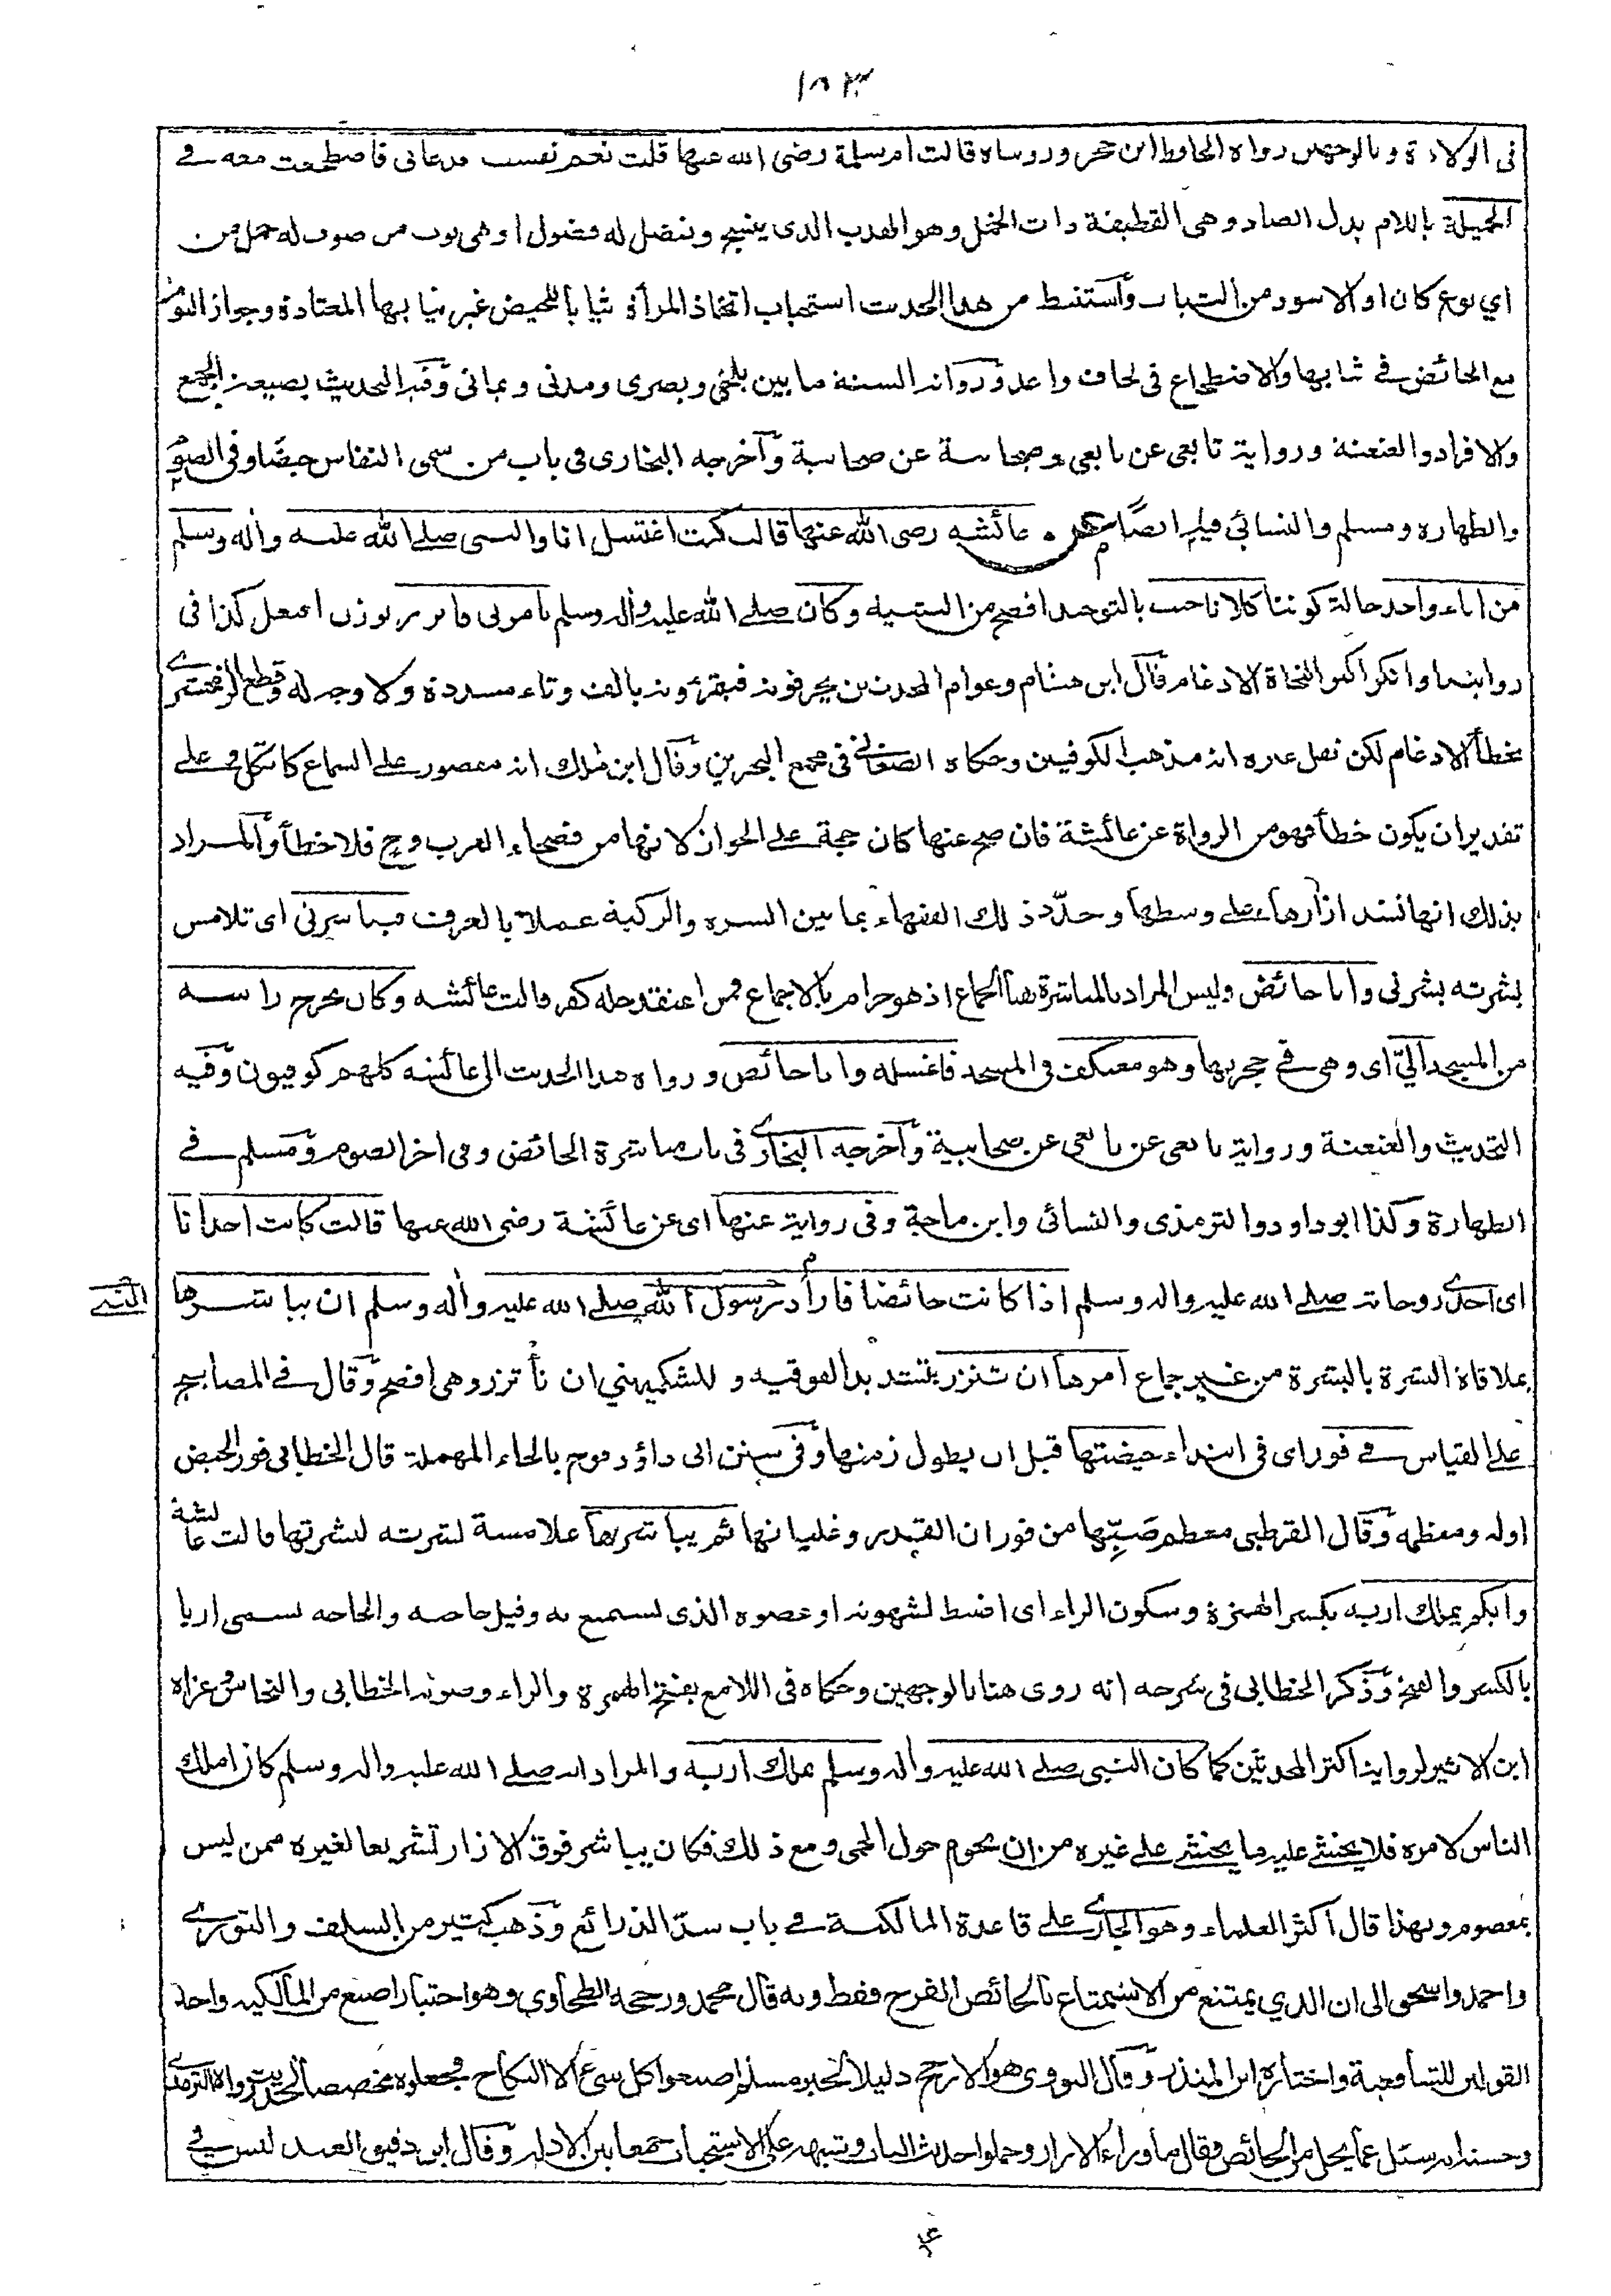 ١٨٣
فى الولادة وبالوجهين رواه الحافظ ابن حجر ورويناه قالت ام سلمة رضى الله عنها قلت نعم نفست فدعانى فاضطجعت معه فى
الخميلة باللام بدل الصاد وهى القطيفة ذات الخمل وهو الهدب الذى ينسج ويفضل له فضول او هى ثوب من صوف له خمل من
اي نوع كان او الاسود من الثياب وآستنبط من هذا الحديث استحباب اتخاذ المرأة ثيابا للحيض غير ثيابها المعتادة وجواز النوم
مع الحائض فى ثيابها والاضطجاع فى لحاف واحد ورواته الستة ما بين بلخى وبصرى ومدنى ويمانى وفيه التحديث بصيغة الجمع
والافراد والعنعنة ورواية تابعى عن تابعى وصحابية عن صحابية وآخرجه البخارى فى باب من سمى النفاس حيضا وفى الصوم
والطهارة ومسلم والنسائى فيه ايضًا عن عائشه رضى الله عنها قالت كنت اغتسل انا والنبى صلے الله عليه وأله وسلم
من اناء واحد حالة كوننا كلانا جنب بالتوحيد افصح من التثنيه وكان صلے الله عليه وأله وسلم يامرنى فاتزر بوزن افتعل كذا فى
روايتنا وانكر اكثر النحاة الادغام فآل ابن هشام وعوام المحدثين يحرفونه فيقرءونه بالف وتاء مشددة ولا وجه له وقطع الزمخشرے
بخطأ الادغام لكن نقل غيره انه مذهب الكوفيين وحكاه الصغانى فى مجمع البحرين وقال ابن ملك انه مقصور على السماع كاتكل وعلى
تقدير ان يكون خطأ فهو من الرواة عن عائشة فان صح عنها كان حجة على الجواز لانها من فصحاء العرب وح فلا خطأ والمراد
بذلك انها تشد ازارها على وسطها وحدّد ذلك الفقهاء بما بين السره والركبة عملا بالعرف فيباشرنى اى تلامس
بشرته بشرتى وانا حائض وليس المراد بالمباشرة هنا الجماع اذ هو حرام بالاجماع فمن اعتقد حله كفر قالت عائشه وكان يخرج راسه
من المسجد آليّ اى وهى فى حجرتها وهو معتكف فى المسجد فاغسله وانا حائض ورواه هذا الحديث الى عائشه كلهم كوفيون وفيه
التحديث والعنعنة ورواية تابعى عن تابعى عن صحابية وآخرجه البخارے فى باب مباشرة الحائض وفى اخر الصوم ومسلم فى
الطهارة وكذا ابو داود والترمذى والنسائى وابن ماجة وفى رواية عنها اى عن عائشة رضى الله عنها قالت كانت احدانا
اى احدے زوجاته صلے الله عليه واله وسلم اذا كانت حائضا فاراد رسول الله صلے الله عليه وأله وسلم ان يباشرها
بملاقاة البشرة بالبشرة من غير جماع امرها ان تتزر بتشديد الفوقيه و للكشميهنى ان تأتزر وهى افصح وقال فى المصابيح
على القياس فى فور اى فى ابتداء حيضتها قبل ان يطول زمنها وفى سنن ابى داؤد فوح بالحاء المهملة قال الخطابى فور الحيض
اوله ومعظمه وقال القرطبى معظم صَبِّها من فوران القدر وغليانها ثم يباشرها بملامسة لبشرته لبشرتها قالت عائشة
وايكم يملك اربه بكسر الهمزة وسكون الراء اى اضبط لشهوته او عضوه الذى يستمتع به وقيل حاجته والحاجه تسمى اربا
بالكسر والفتح وذكر الخطابى فى شرحه انه روى هنا بالوجهين وحكاه فى اللامع بفتح الهمزة والراء وصوبه الخطابى والنحاس وعزاه
ابن الاثير لرواية اكثر المحدثين كما كان النبى صلے الله عليه وأله وسلم يملك اربه والمراد انه صلے الله عليه واله وسلم كان املك
الناس لامره فلا يخشے عليه ما يخشے على غيره من ان يحوم حول الحمى ومع ذلك فكان يباشر فوق الازار تشريعا لغيره ممن ليس
بمعصوم وبهذا قال اكثر العلماء وهو الجارے على قاعدة المالكية فى باب سدّ الذرائع وذهب كثير من السلف والثورے
واحمد واسحق الى ان الذي يمتنع من الاستمتاع بالحائض الفرج فقط وبه قال محمد ورجحه الطحاوي وهو اختيار اصبغ من المالكيه واحد
القولين للشافعية واختاره ابن المنذر وقال النووى هو الارجح دليلا لخبر مسلم اصنعوا كل شئ الا النكاح فجعلوه مخصصا لحديث رواه الترمذى
وحسنه انه سئل عما يحل من الحائض فقال ما وراء الازار وحملوا حديث الباب وشبهه على الاستحباب جمعا بين الادلة وقال ابن دقيق العيد ليس فى